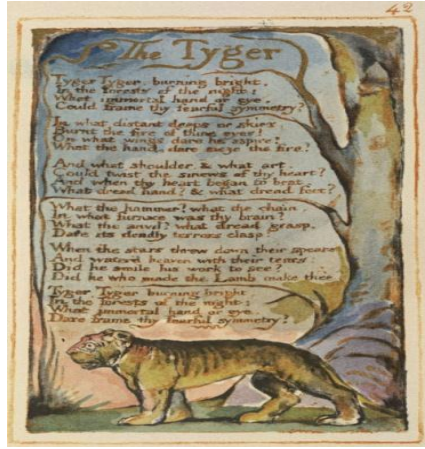 42
The Tyger
Tyger Tyger, burning bright,
In the forests of the night;
What immortal hand or eye,
Could frame thy fearful symmetry?
In what distant deeps or skies,
Burnt the fire of thine eyes?
On what wings dare he aspire?
What the hand, dare sieze the fire?
And what shoulder, & what art,
Could twist the sinews of thy heart?
And when thy heart began to beat,
What dread hand? & what dread feet?
What the hammer? what the chain,
In what furnace was thy brain?
What the anvil? what dread grasp,
Dare its deadly terrors clasp!
When the stars threw down their spears
And water'd heaven with their tears:
Did he smile his work to see?
Did he who made the Lamb make thee?
Tyger Tyger burning bright,
In the forests of the night:
What immortal hand or eye,
Dare frame thy fearful symmetry?